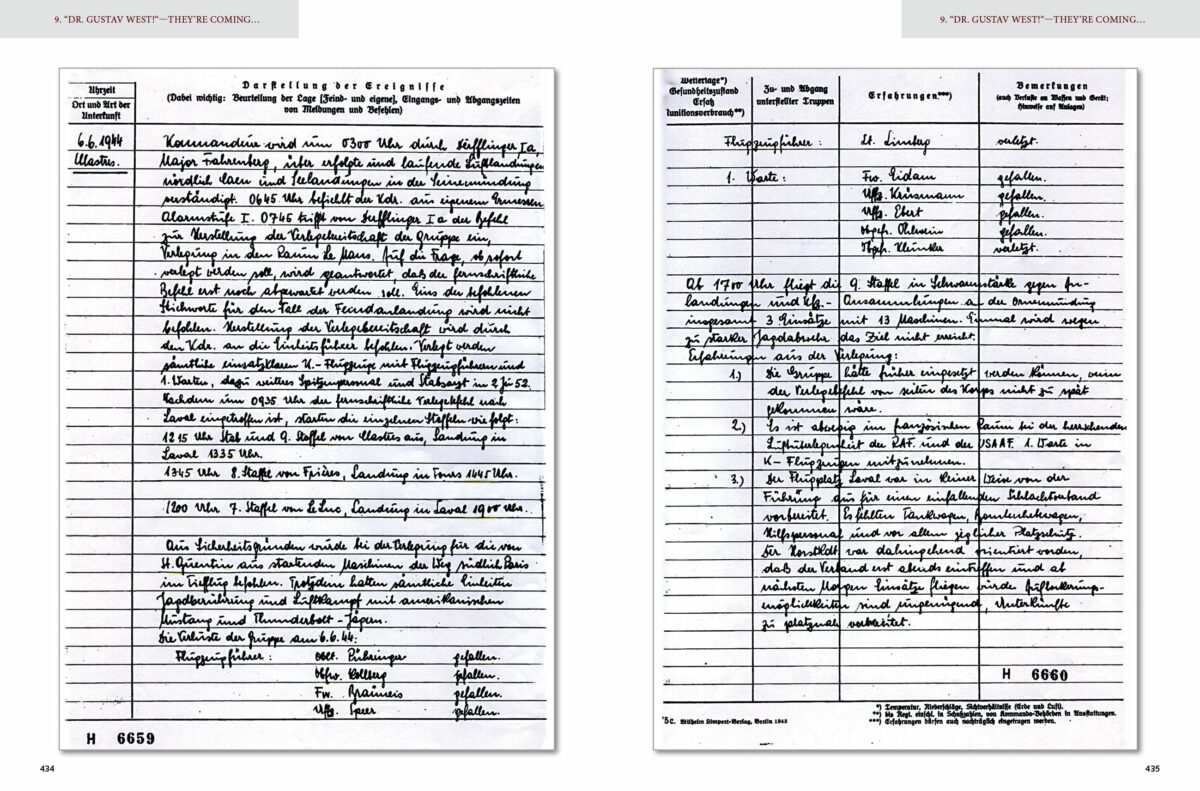 9. "DR. GUSTAV WEST!"—THEY'RE COMING…
Uhrzeit
Ort und Art der
Unterkunft
Darstellung der Ereignisse
(Dabei wichtig: Beurteilung der Lage [Feind- und eigene], Eingangs- und Abgangszeiten
von Meldungen und Befehlen)
6.6.1944
Mastres.
Kommandeur wird um 0300 Uhr durch Derfflinger Ia,
Major Fahrenberg, über erfolgte und laufende Luftlandungen
nördlich Caen und Seelandungen in der Seinemündung
verständigt. 0645 Uhr befiehlt der Kdr. aus eigenem Ermessen
Alarmstufe I. 0745 trifft von Derfflinger Ia der Befehl
zur Herstellung der Verlegebereitschaft der Gruppe ein,
Verlegung in den Raum Le Mans. Auf die Frage, ob sofort
verlegt werden soll, wird geantwortet, daß der fernschriftliche
Befehl erst noch abgewartet werden soll. Eins der befohlenen
Stichworte für den Fall der Feindanlandung wird nicht
befohlen. Herstellung der Verlegebereitschaft wird durch
den Kdr. an die Einheitsführer befohlen. Verlegt werden
sämtliche einsatzklaren K.-Flugzeuge mit Flugzeugführern und
1. Warten, dazu weiteres Spitzenpersonal und Stabsarzt in 2 Ju 52.
Nachdem um 0935 Uhr der fernschriftliche Verlegebefehl nach
Laval eingetroffen ist, starten die einzelnen Staffeln wie folgt:
1215 Uhr Stab und 9. Staffel von Mastres aus, Landung in
Laval 1335 Uhr.
1345 Uhr 8. Staffel von Frières, Landung in Tours 1445 Uhr.
1200 Uhr 7. Staffel von Le Luc, Landung in Laval 1900 Uhr.
Aus Sicherheitsgründen wurde bei der Verlegung für die von
St. Quentin aus startenden Maschinen der Weg südlich Paris
im Tiefflug befohlen. Trotzdem hatten sämtliche Einheiten
Jagdberührung und Luftkampf mit amerikanischen
Mustang und Thunderbolt-Jägern.
Die Verluste der Gruppe am 6.6.44:
Flugzeugführer: Oblt. Pühringer gefallen.
Obfw. Kollberg gefallen.
Fw. gefallen.
Uffz. gefallen.
H 6659
434
9. "DR. GUSTAV WEST!"—THEY'RE COMING…
Wetterlage*)
Gesundheitszustand
Ersatz
Munitionsverbrauch**)
Zu- und Abgang
unterstellter Truppen
Erfahrungen***)
Bemerkungen
(auch Verluste an Waffen und Gerät;
Hinweise auf Anlagen)
Flugzeugführer: Lt. Limberg verletzt.
1. Warte: Fw. Eidam gefallen.
Uffz. Krüsmann gefallen.
Uffz. Ebert gefallen.
Obgefr. Ohlwein gefallen.
Obgefr. Klünker verletzt.
Ab 1700 Uhr fliegt die 9. Staffel in Schwarmstärke gegen An-
landungen und Kfz.-Ansammlungen an der Ornemündung
insgesamt 3 Einsätze mit 13 Maschinen. Einmal wird wegen
zu starker Jagdabwehr das Ziel nicht erreicht.
Erfahrungen aus der Verlegung:
1.) Die Gruppe hätte früher eingesetzt werden können, wenn
der Verlegebefehl von seiten des Korps nicht zu spät
gekommen wäre.
2.) Es ist abwegig im französischen Raum bei der herrschenden
Luftüberlegenheit der RAF. und der USAAF. 1. Warte in
K-Flugzeugen mitzunehmen.
3.) Der Flugplatz Laval war in keiner Weise von der
Führung aus für einen einfallenden Schlachtverband
vorbereitet. Es fehlten Tankwagen, Bombenhebewagen,
Hilfspersonal und vor allem jeglicher Platzschutz.
Der Horstkdt war dahingehend orientiert worden,
daß der Verband erst abends eintreffen und ab
nächsten Morgen Einsätze fliegen würde. Auflockerungs-
möglichkeiten sind ungenügend, Unterkünfte
zu platznah vorbereitet.
H 6660
5c. Wilhelm Limpert-Verlag, Berlin 1943
*) Temperatur, Niederschläge, Sichtverhältnisse (Erde und Luft).
**) bis Regt. einschl. in Schußzahlen, von Kommando-Behörden in Ausstattungen.
***) Erfahrungen dürfen auch nachträglich eingetragen werden.
435